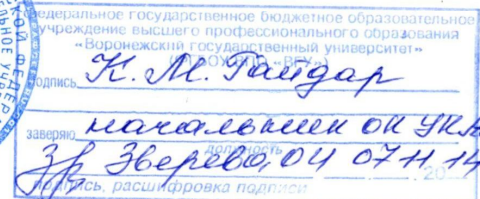 федеральное государственное бюджетное образовательное
учреждение высшего профессионального образования
«Воронежский государственный университет»
(ФГБОУ ВПО «ВГУ»)
Подпись К. М. Гайдар
заверяю начальник ОК УКА
должность
Зверева О И 07 11 14
20
подпись, расшифровка подписи